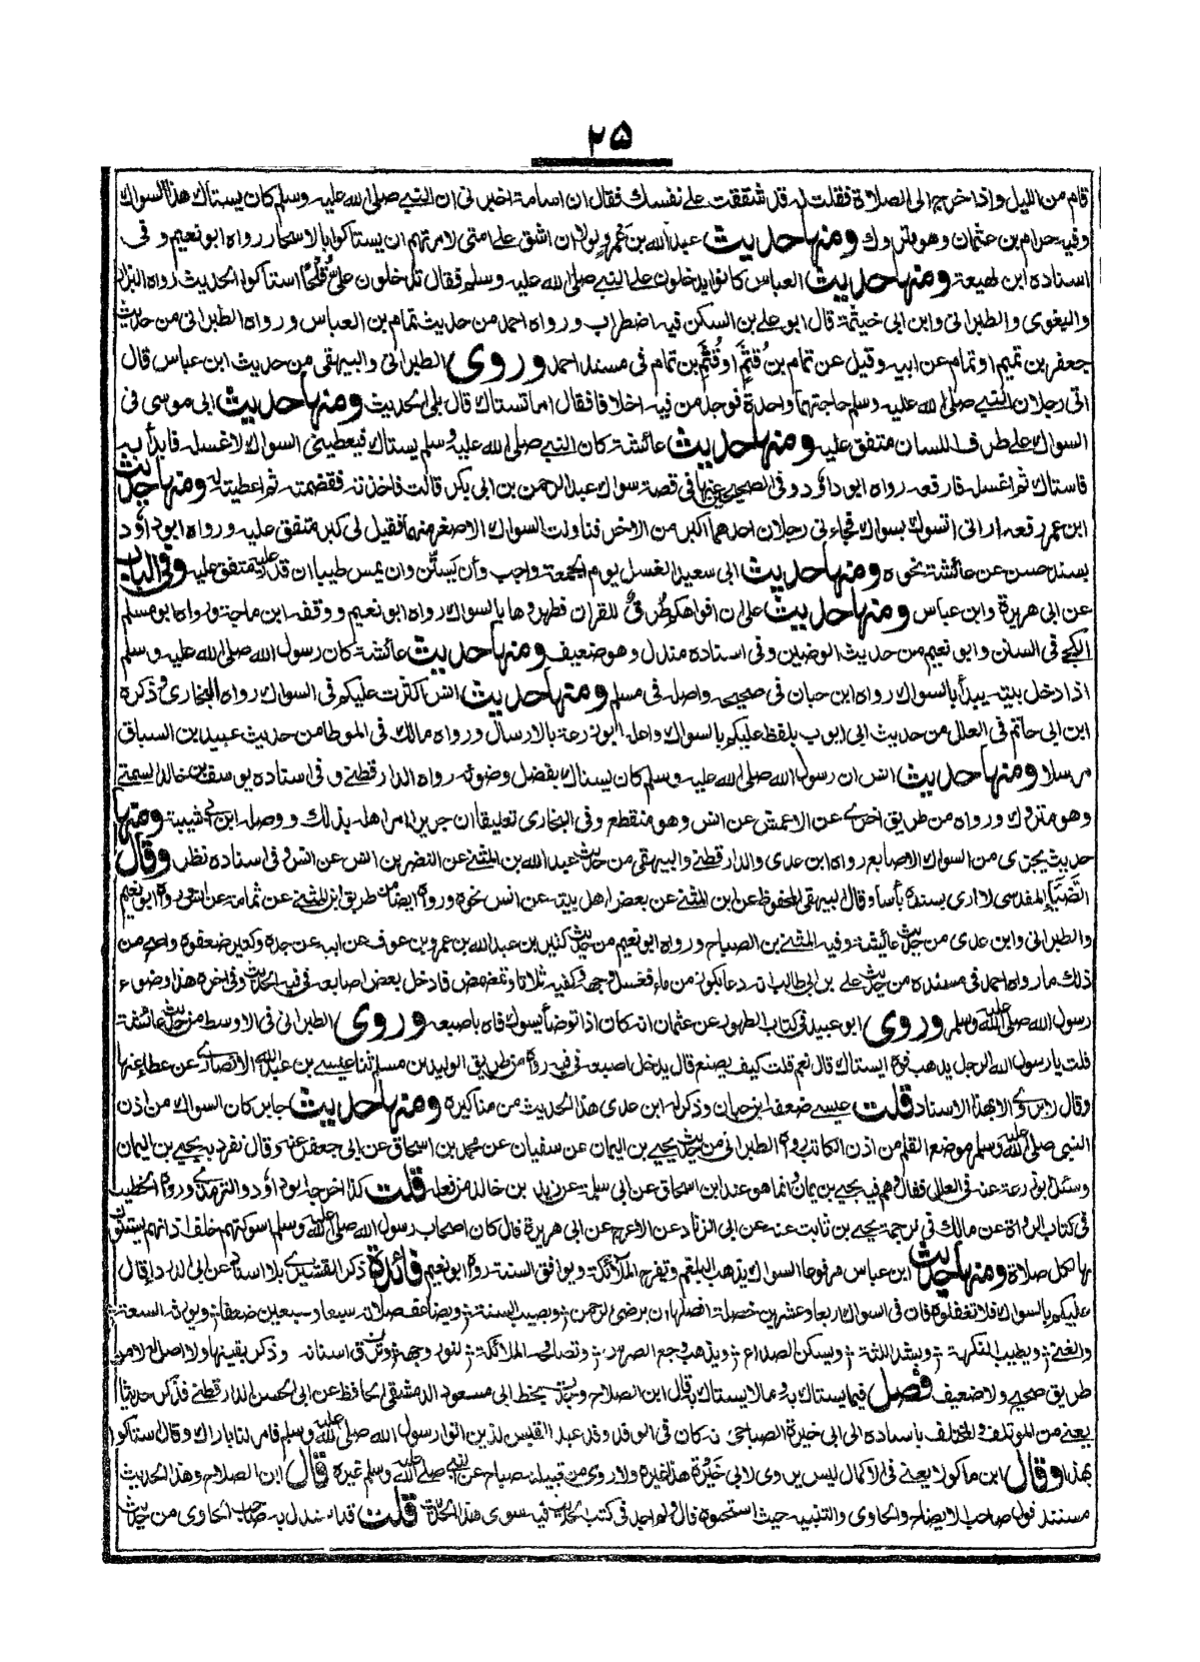 ٢٥
قام من الليل واذا خرج الى الصلاة فقلت له قد شققت على نفسك فقال ان اسامة اخبرنى ان النبى صلى الله عليه وسلم كان يستاك هذا السواك
وفيه حرام بن عثمان وهو متروك ومنها حديث عبد الله بن عمرو لولا ان اشق على امتى لامرتهم ان يستاكوا بالاسحار رواه ابو نعيم وفى
اسناده ابن لهيعة ومنها حديث العباس كانوا يدخلون على النبى صلى الله عليه وسلم فقال تدخلون على قلحا استاكوا الحديث رواه البزار
والبغوى والطبرانى وابن ابى خيثمة قال ابو على بن السكن فيه اضطراب ورواه احمد من حديث تمام بن العباس ورواه الطبرانى من حديث
جعفر بن تميم او تمام عن ابيه وقيل عن تمام بن قثم او قثم بن تمام فى مسند احمد وروى الطبرانى والبيهقى من حديث ابن عباس قال
اتى رجلان النبى صلى الله عليه وسلم حاجتهما واحدة فوجد من فيه اخلافا فقال اما تستاك قال بلى الحديث ومنها حديث ابى موسى فى
السواك على طرف اللسان متفق عليه ومنها حديث عائشة كان النبى صلى الله عليه وسلم يستاك فيعطينى السواك لاغسله فابدأ به
فاستاك ثم اغسله فارفعه رواه ابو داود وفى الصحيحين عنها فى قصة سواك عبد الرحمن بن ابى بكر قالت فاخذته فقضمته ثم اعطيته له ومنها حديث
ابن عمر رفعه ارانى اتسوك بسواك فجاءنى رجلان احدهما اكبر من الاخر فناولت السواك الاصغر منهما فقيل لى كبر متفق عليه ورواه ابو داود
بسند حسن عن عائشة نحوه ومنها حديث ابى سعيد الغسل يوم الجمعة واجب وأن يستن وان يمس طيبا ان قدر عليه متفق عليه وفى الباب
عن ابى هريرة وابن عباس ومنها حديث على ان افواهكم طرق للقران فطهروها بالسواك رواه ابو نعيم ووقفه ابن ماجة ورواه ابو مسلم
الكجى فى السنن وابو نعيم من حديث الوضين وفى اسناده مندل وهو ضعيف ومنها حديث عائشة كان رسول الله صلى الله عليه وسلم
اذا دخل بيته يبدأ بالسواك رواه ابن حبان فى صحيحه واصله فى مسلم ومنها حديث انس اكثرت عليكم فى السواك رواه البخارى وذكره
ابن ابى حاتم فى العلل من حديث ابى ايوب بلفظ عليكم بالسواك واعله ابو زرعة بالارسال ورواه مالك فى الموطا من حديث عبيد بن السباق
مرسلا ومنها حديث انس ان رسول الله صلى الله عليه وسلم كان يستاك بفضل وضوئه رواه الدارقطنى وفى اسناده يوسف بن خالد السمتى
وهو متروك ورواه من طريق اخرى عن الاعمش عن انس وهو منقطع وفى البخارى تعليقا ان جريرا امر اهله بذلك ووصله ابن ابى شيبة ومنها
حديث يجزى من السواك الاصابع رواه ابن عدى والدارقطنى والبيهقى من حديث عبد الله بن المثنى عن النضر بن انس عن انس وفى اسناده نظر وقال
الضيا المقدسى لا ارى بسنده بأسا وقال البيهقى المحفوظ عن ابن المثنى عن بعض اهل بيته عن انس نحوه ورواه ايضا من طريق ابن المثنى عن ثمامة عن انس ورواه ابو نعيم
والطبرانى وابن عدى من حديث عائشة وفيه المثنى بن الصباح ورواه ابو نعيم من حديث كثير بن عبد الله بن عمرو بن عوف عن ابيه عن جده وكثير ضعفوه واصح من
ذلك ما رواه احمد فى مسنده من حديث على بن ابى طالب انه دعا بكوز من ماء فغسل وجهه وكفيه ثلاثا وتمضمض فادخل بعض اصابعه فى فيه الحديث وفى اخره هذا وضوء
رسول الله صلى الله عليه وسلم وروى ابو عبيد فى كتاب الطهور عن عثمان انه كان اذا توضأ يسوك فاه باصبعه وروى الطبرانى فى الاوسط من حديث عائشة
قلت يا رسول الله الرجل يذهب فوه ايستاك قال نعم قلت كيف يصنع قال يدخل اصبعه فى فيه رواه من طريق الوليد بن مسلم ثنا عيسى بن عبد الله الانصارى عن عطاء عنها
وقال لا يروى الا بهذا الاسناد قلت عيسى ضعفه ابن حبان وذكر له ابن عدى هذا الحديث من مناكيره ومنها حديث جابر كان السواك من اذن
النبى صلى الله عليه وسلم موضع القلم من اذن الكاتب رواه الطبرانى من حديث يحيى بن اليمان عن سفيان عن محمد بن اسحاق عن ابى جعفر عنه وقال تفرد به يحيى بن اليمان
وسئل ابو زرعة عنه فى العلل فقال وهم فيه يحيى بن يمان وانما هو عند ابن اسحاق عن ابى سلمة عن زيد بن خالد من فعله قلت كذا اخرجه ابو داود والترمذى ورواه الخطيب
فى كتاب الرواة عن مالك فى ترجمة يحيى بن ثابت عنه عن ابى الزناد عن الاعرج عن ابى هريرة قال كان اصحاب رسول الله صلى الله عليه وسلم اسوكتهم خلف اذانهم يستنون
بها لكل صلاة ومنها حديث ابن عباس مرفوعا السواك يذهب البلغم ويفرح الملائكة ويوافق السنة رواه ابو نعيم فائدة ذكر القشيرى بلا اسناد عن ابى الدرداء قال
عليكم بالسواك فلا تغفلوه فان فى السواك اربعا وعشرين خصلة افضلها ان يرضى الرحمن ويصيب السنة ويضاعف صلاته سبعا وسبعين ضعفا ويورثه السعة
والغنى ويطيب النكهة ويشد اللثة ويسكن الصداع ويذهب وجع الضرس وتصافحه الملائكة لنور وجهه وبرق اسنانه وذكر بقيتها ولا اصل له لا من
طريق صحيح ولا ضعيف فصل فيما يستاك به وما لا يستاك به قال ابن الصلاح وجدت بخط ابى مسعود الدمشقى الحافظ عن ابى الحسن الدارقطنى فذكر حديثا
يعنى من المؤتلف والمختلف باسناده الى ابى خيرة الصباحى انه كان فى الوفد وفد عبد القيس الذين اتوا رسول الله صلى الله عليه وسلم فامر لنا باراك وقال استاكوا
بهذا وقال ابن ماكولا يعنى فى الاكمال ليس يروى لابى خيرة هذا غيره ولا روى من قبيلة صباح عن النبى صلى الله عليه وسلم غيره قال ابن الصلاح وهذا الحديث
مستند قول صاحب الايضاح والحاوى والتنبيه حيث استحبوه قال ولم اجد فى كتب الحديث فيه سوى هذا الحديث قلت قد استدل به صاحب الحاوى من حديث